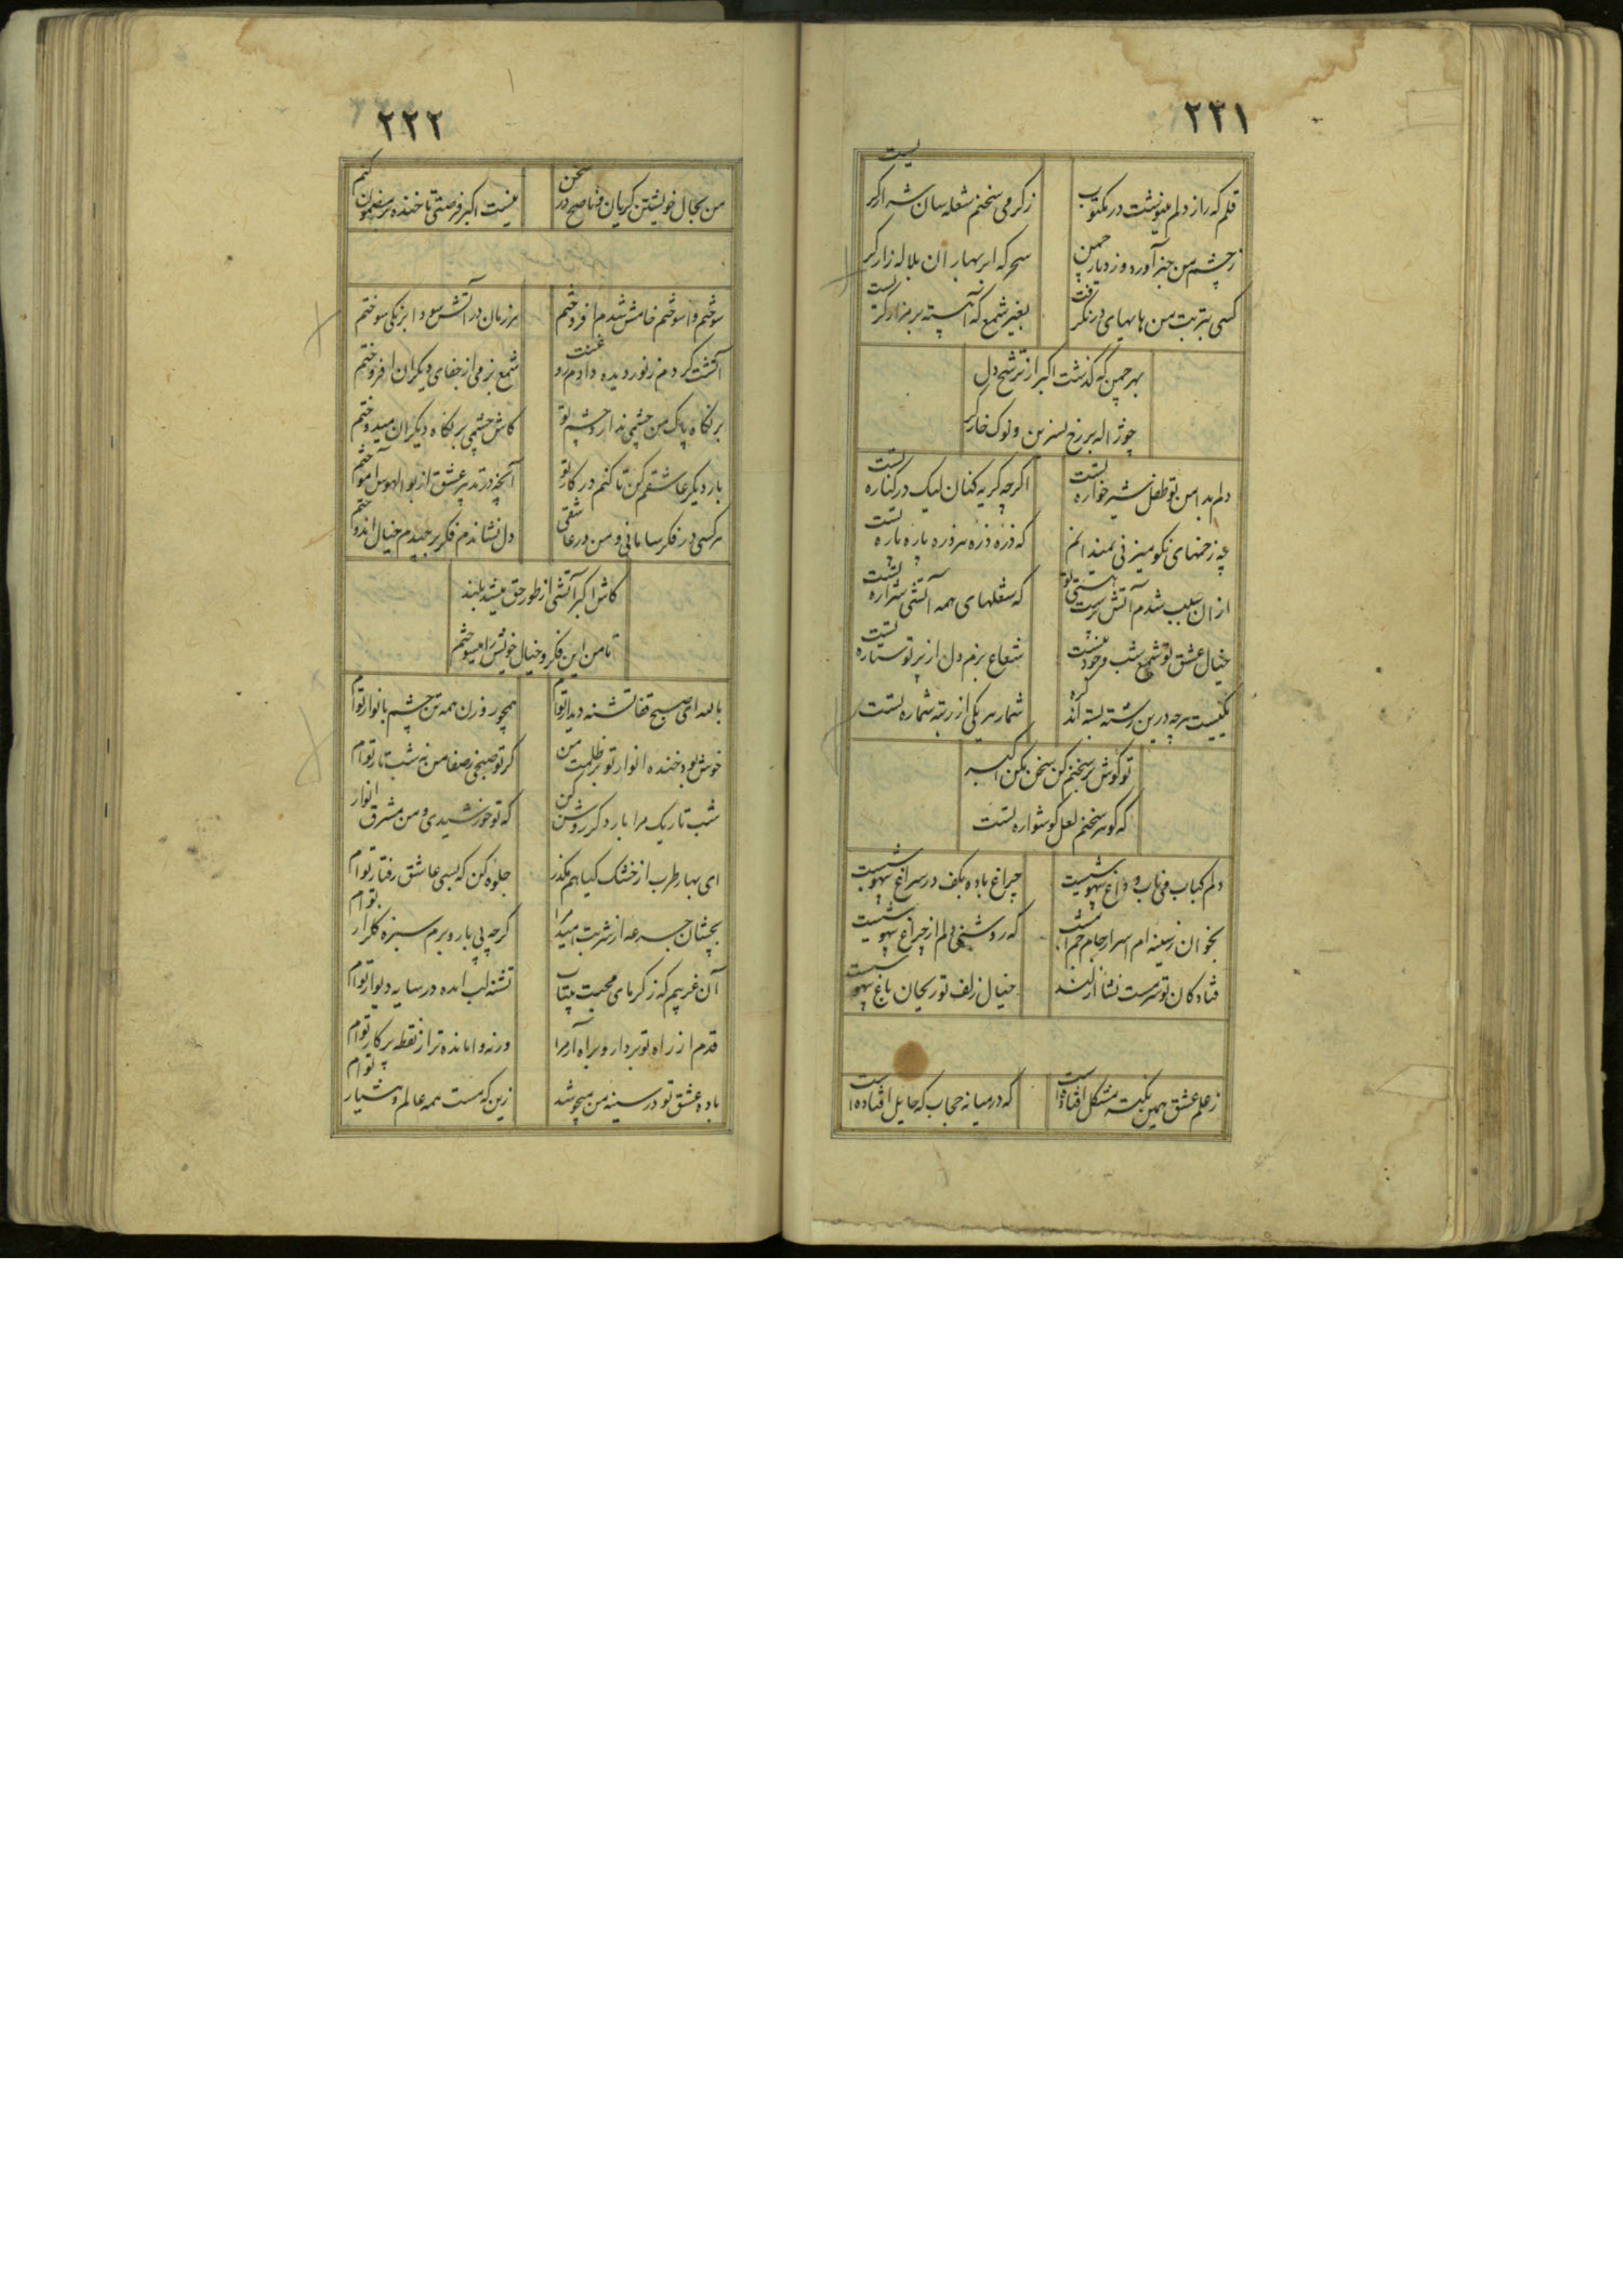 ۲۲۱
قلم که راز دلم مینوشت در مکتوب
ز گرمی سخنم شعله سان شرار گریست
ز چشم من خبر آورد وز دیار چمن
سحر که ابر بهاران بلاله زار گریست
کسی بتربت من هایهای در نگرفت
بغیر شمع که آهسته بر مزار گریست
بهر چمن که گذشت اکبر از ترشح دل
چو ژاله بر رخ نسرین و نوک خار گریست
دلم بدامن تو طفل شیرخواره تست
اگرچه گریه کنان لیک در کناره تست
چه زخمهای نکو میزنی نمیدانم
که ذره ذره هر ذره پاره پاره تست
ازان سبب شدم آتش پرست هستی تو
که شعلهای همه آتشی شراره تست
خیال عشق تو شمع شب وجود منست
شعاع بزم دل از پرتو ستاره تست
یکیست هرچه درین رشته بسته اند گره
شمار هر یکی از رتبه شماره تست
تو گوش بر سخنم کن سخن مکن اکبر
که گوهر سخنم لعل گوشواره تست
دلم کباب می ناب و داغ بیهوشیست
چراغ باده بکف در سراغ بیهوشیست
بخوان ز سینه ام اسرار جام جم امشب
که روشنی دلم از چراغ بیهوشیست
فتادگان تو سرمست نشأ ازلند
خیال زلف تو ریحان باغ بیهوشیست
ز علم عشق همین نکته مشکل افتاده است
که در میانه حجاب که حایل افتاده است
۲۲۲
من بحال خویشتن گریان و ناصح در سخن
نیست اکبر فرصتی تا خنده بر مضمون کنم
سوختم واسوختم خامش شدم افروختم
هر زمان در آتش سودا برنگی سوختم
انگشت کردم ز نور دیده دادم روغنت
شمع بزمی از جفای دیگران افروختم
بر نگاه پاک من چشمی ندارد چشم تو
کاش چشمی بر نگاه دیگران میدوختم
بار دیگر عاشقم کن تا کنم در کار تو
آنچه در تدبیر عشق از بوالهوس آموختم
هر کسی در فکر سامانی و من در عاشقی
دل نشاندم فکر برچیدم خیال اندوختم
کاش اکبر آتشی از طور حق میشد بلند
تا من این فکر و خیال خویش را میسوختم
بالله ای صبح قفا تشنه دیدار توام
همچو روزن همه تن چشم بانوار توام
خوش بود خنده انوار تو بر ظلمت من
گر تو صبحی ز صفا من نه شب تار توام
شب تاریک مرا بار دگر روشن کن
که تو خورشیدی و من مشرق انوار توام
ای بهار طرب از خشک گیاهم مگذر
جلوه کن که بسی عاشق رفتار توام
بچشان جرعه از شربت امید مرا
گرچه بی بار و برم سبزه گلزار توام
آن غریبم که ز گرمای محبت بیتاب
تشنه لب آمده در سایه دیوار توام
قدم از راه تو بردار و براه آر مرا
ورنه وامانده تر از نقطه پرکار توام
باده عشق تو در سینه من میجوشد
زین که مست همه عالم و هشیار توام